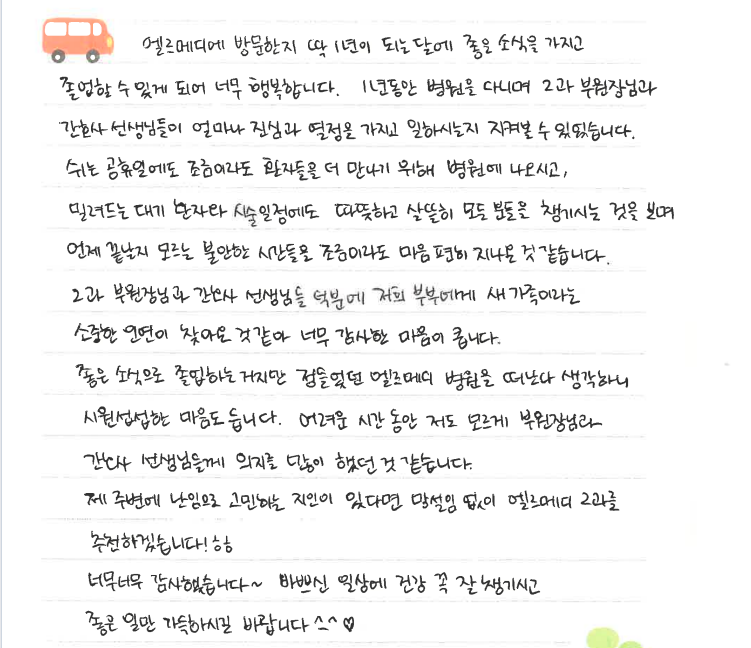 엘르메디에 방문한지 딱 1년이 되는 달에 좋은 소식을 가지고
졸업할 수 있게 되어 너무 행복합니다. 1년동안 병원을 다니며 2과 부원장님과
간호사 선생님들이 얼마나 진심과 열정을 가지고 일하시는지 지켜볼 수 있었습니다.
쉬는 공휴일에도 조금이라도 환자들을 더 만나기 위해 병원에 나오시고,
밀려드는 대기 환자와 시술일정에도 따뜻하고 살뜰히 모든 분들을 챙기시는 것을 보며
언제 끝날지 모르는 불안한 시간들을 조금이라도 마음 편히 지나온 것 같습니다.
2과 부원장님과 간호사 선생님들 덕분에 저희 부부에게 새 가족이라는
소중한 인연이 찾아온 것 같아 너무 감사한 마음이 큽니다.
좋은 소식으로 졸업하는거지만 정들었던 엘르메디 병원을 떠난다 생각하니
시원섭섭한 마음도 듭니다. 어려운 시간 동안 저도 모르게 부원장님과
간호사 선생님들께 의지를 많이 했던 것 같습니다.
제 주변에 난임으로 고민하는 지인이 있다면 망설임 없이 엘르메디 2과를
추천하겠습니다! ㅎㅎ
너무너무 감사했습니다~ 바쁘신 일상에 건강 꼭 잘 챙기시고
좋은 일만 가득하시길 바랍니다 ^^ ♡